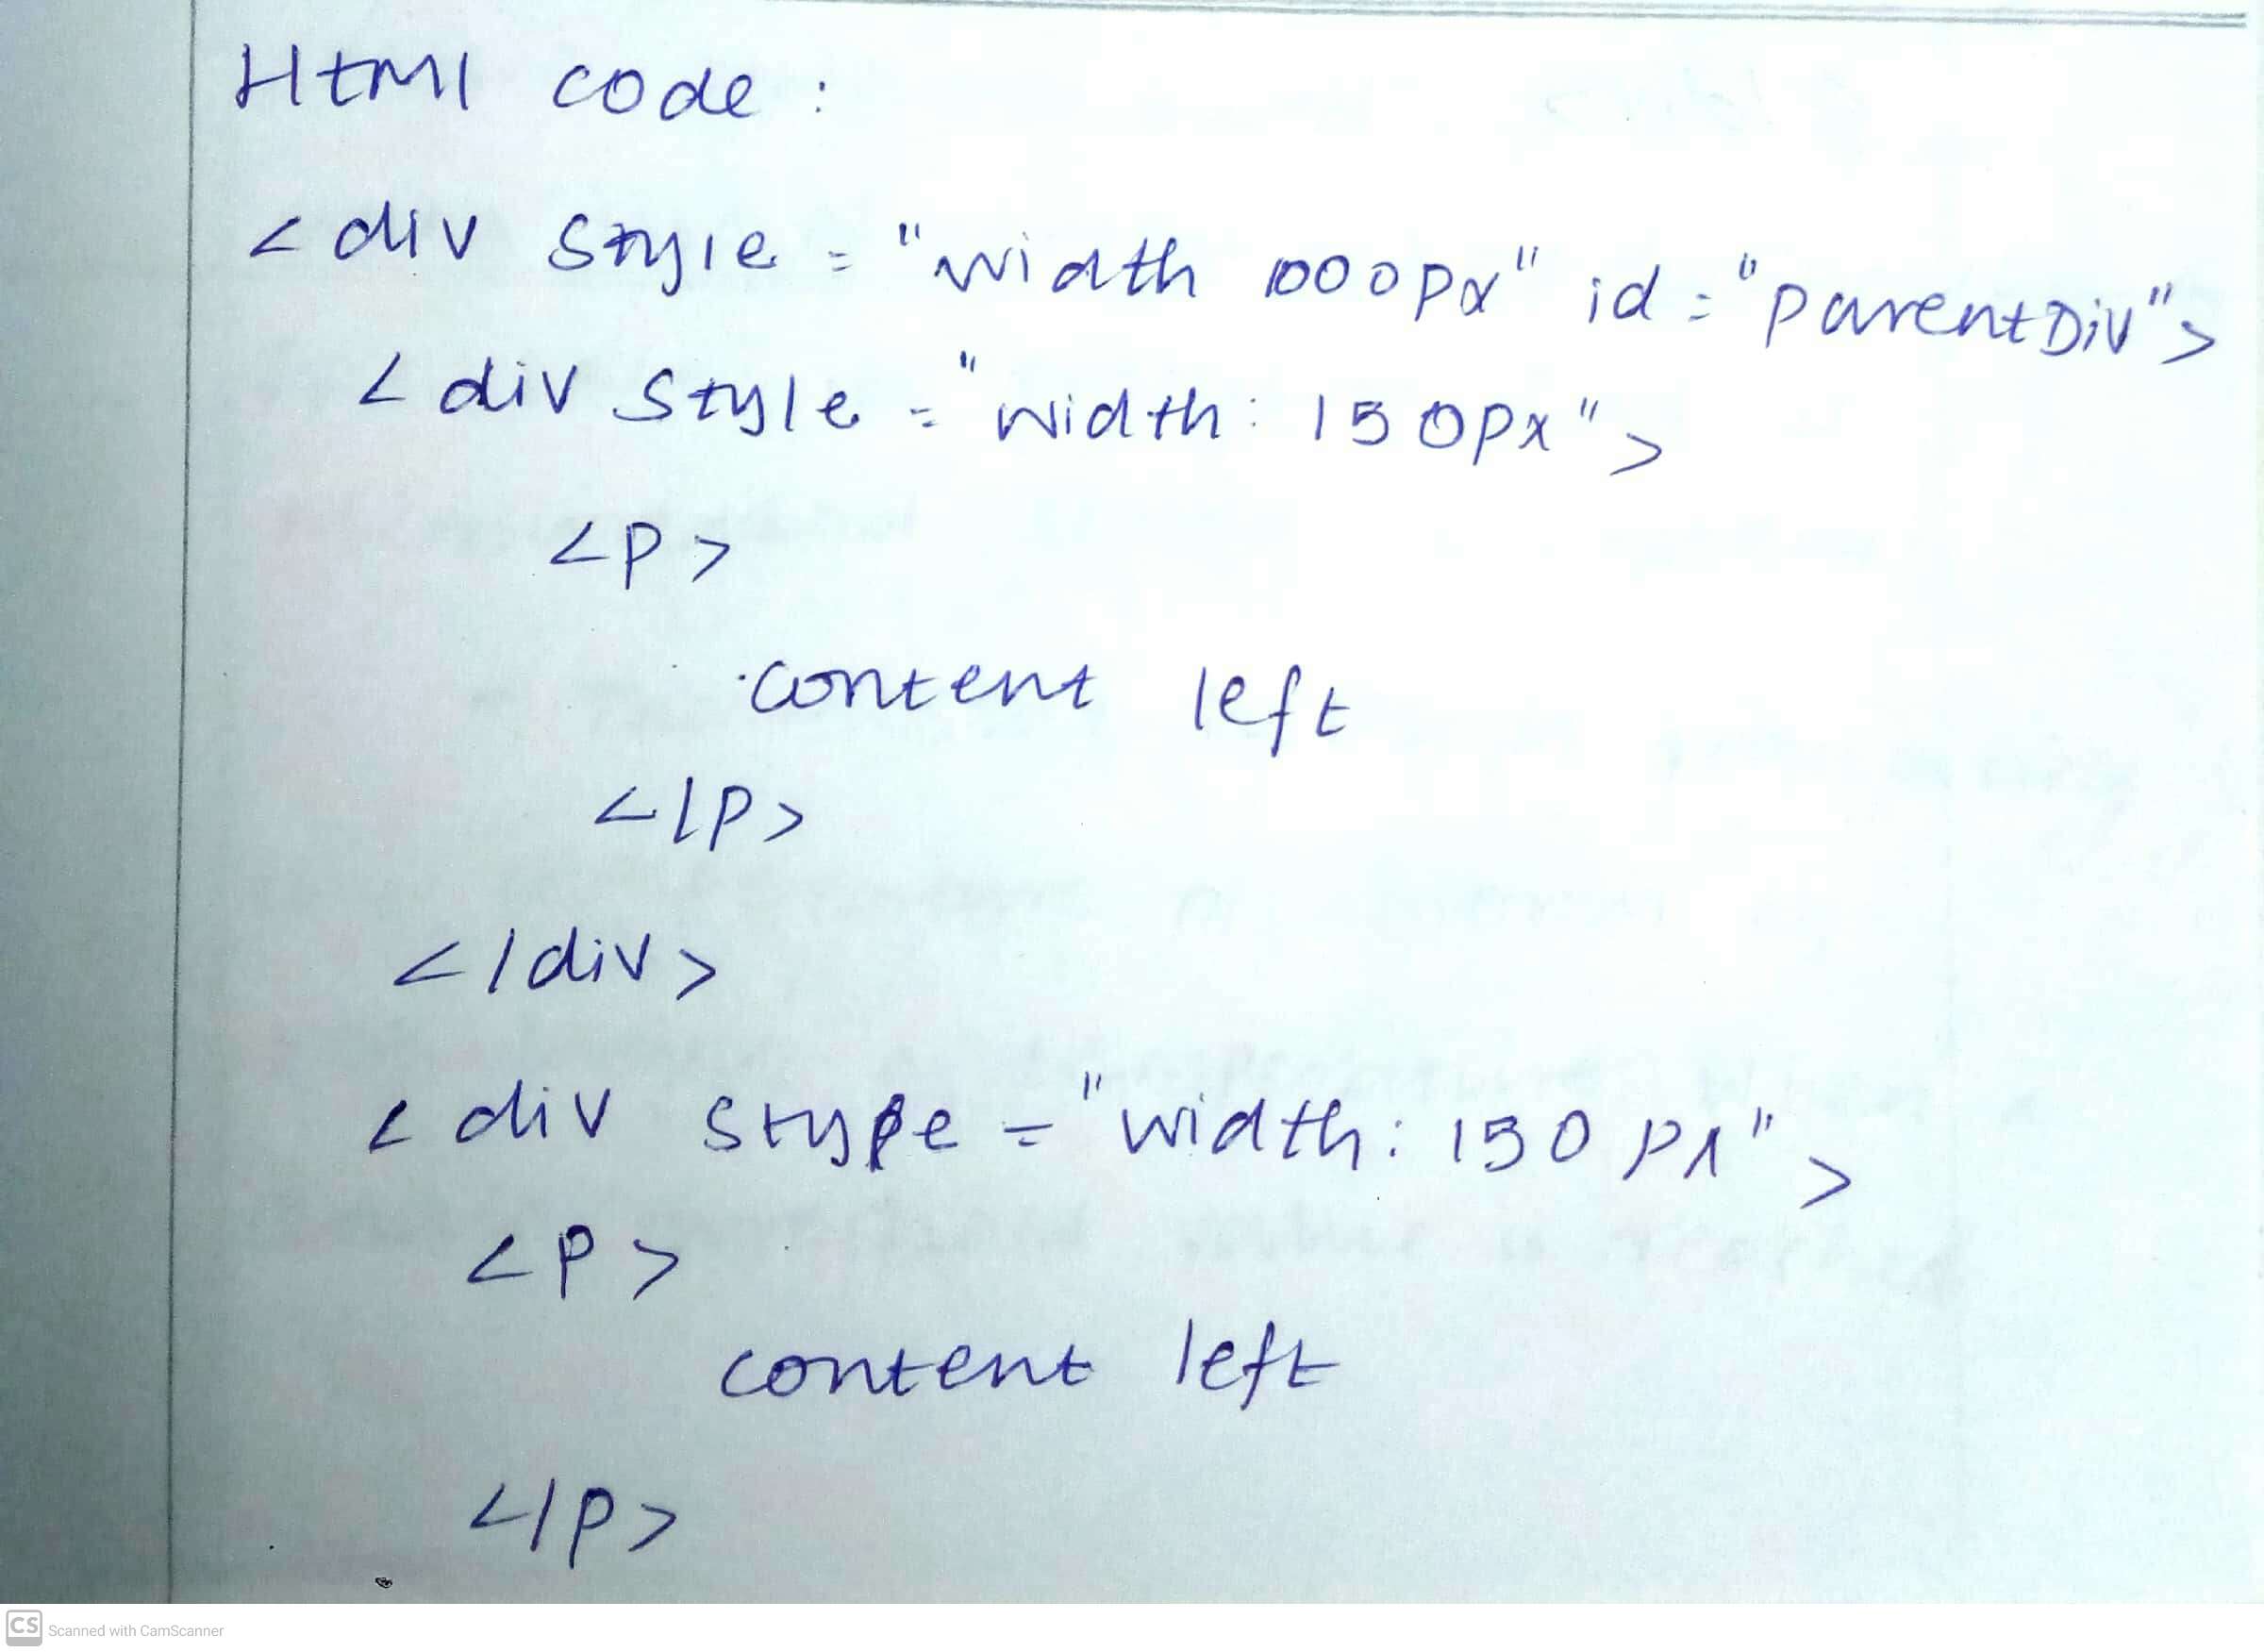 Html code :
<div style = "width 1000px" id = "parentDiv">
<div style = "width: 150px">
<p>
content left
</p>
</div>
<div stype = "width: 150px">
<p>
content left
</p>
CS Scanned with CamScanner